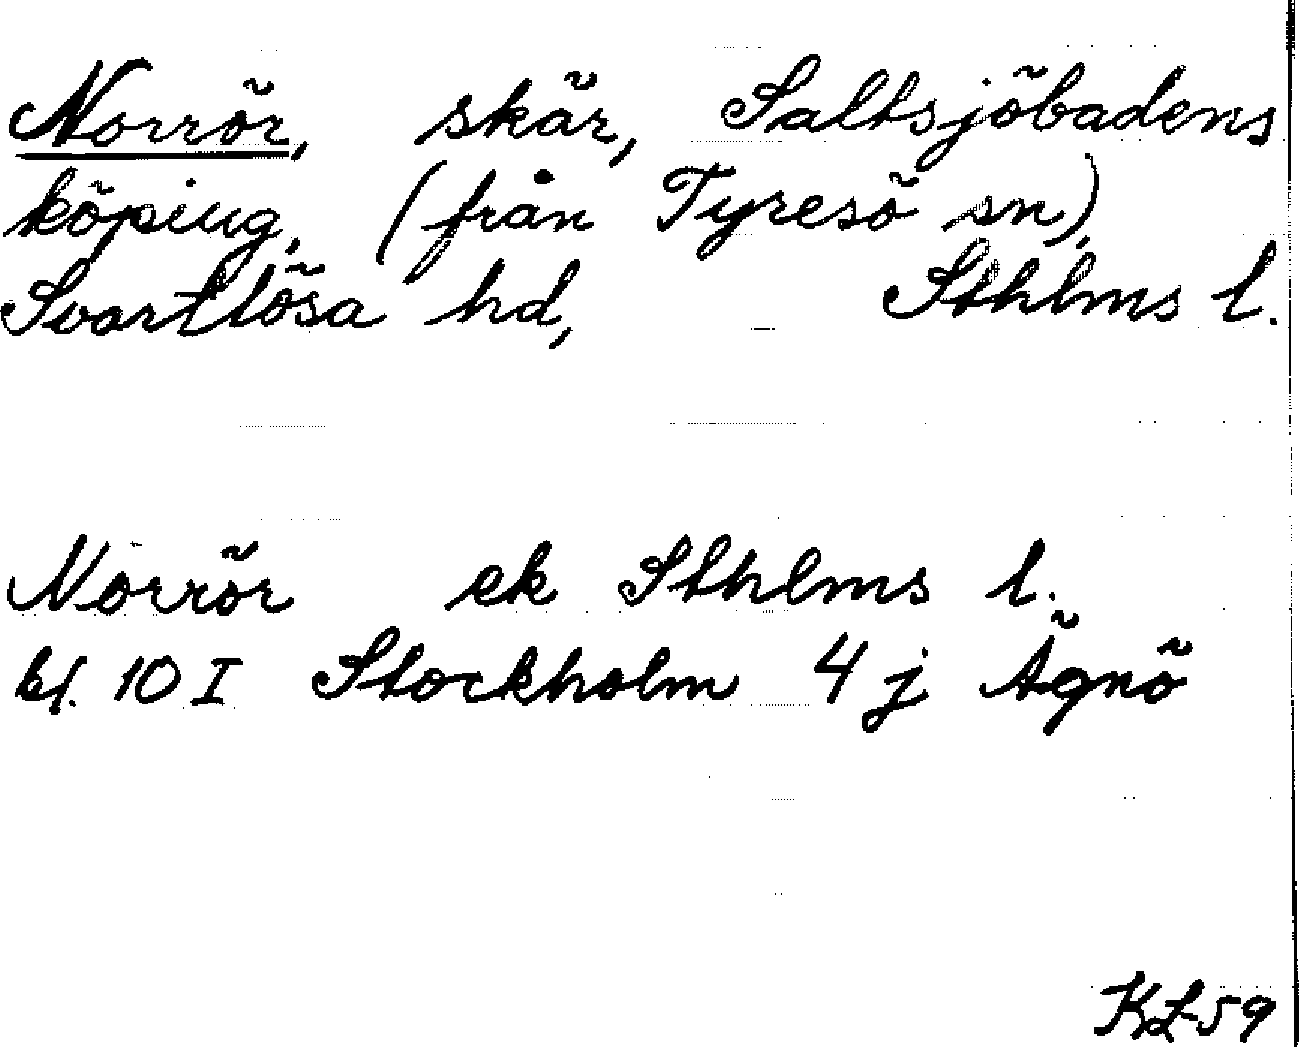 Norrör, skär, Saltsjöbadens
köping, (från Tyresö sn),
Svartlösa hd, Sthlms l.
Norrör ek Sthlms l.
bl. 10 I Stockholm 4 j Ägnö
KL-59